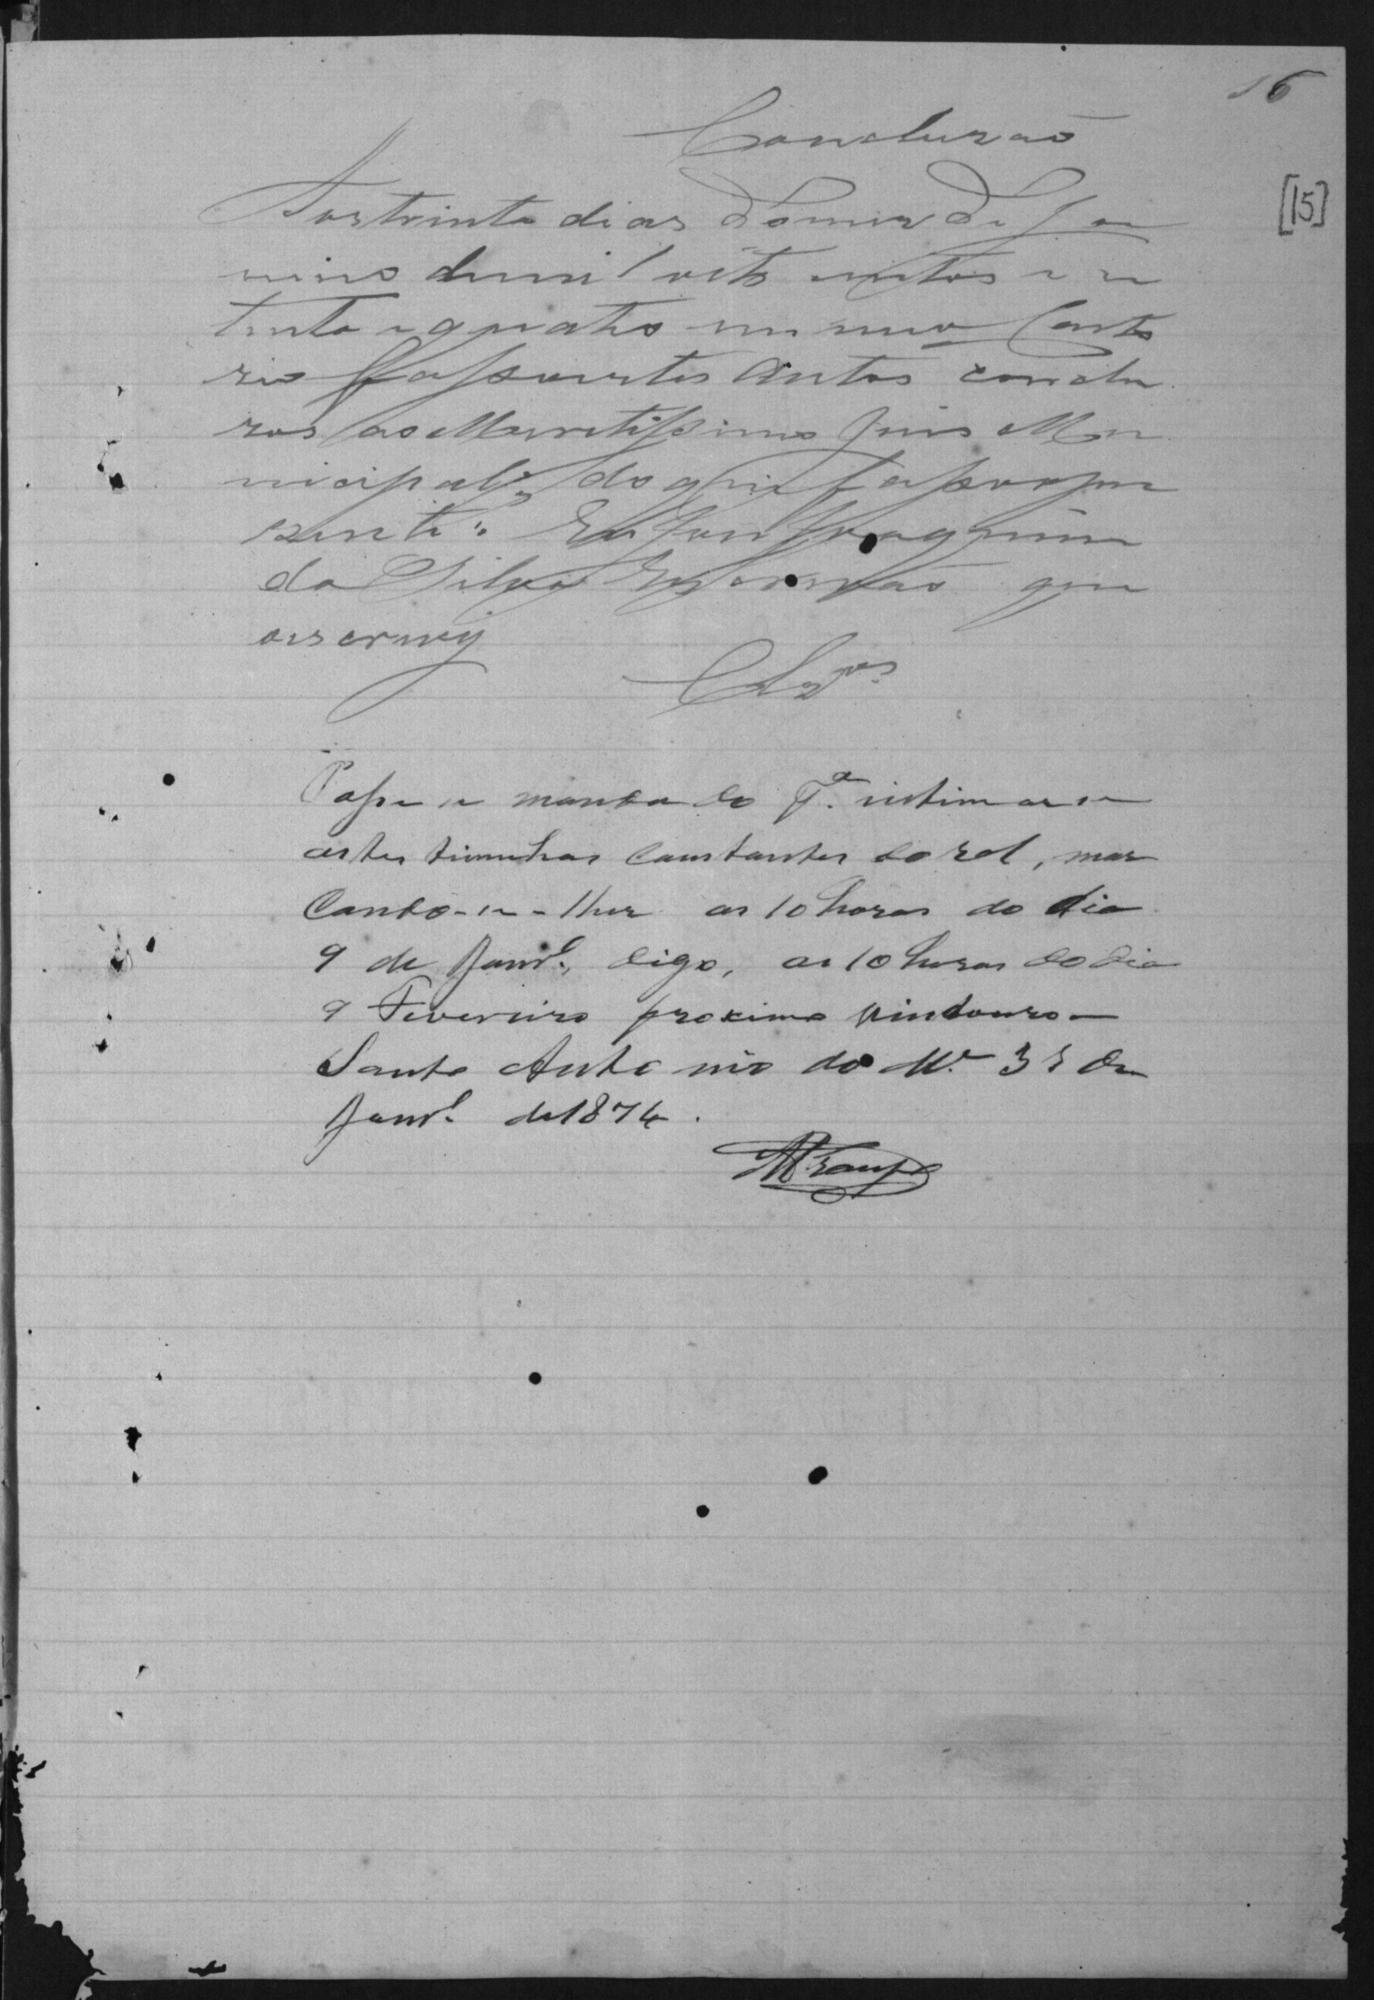 16
[15]
Conclusão
Aos trinta dias do mes de Ja
neiro de mil oito centos e se
tenta e quatro em meu Carto
rio faço estes Autos conclu
sos ao Meretissimo Juis Mu
nicipal, do que faço o pre
sente: Eu José Joaquim
da Silva Escrivão que
o escrevy
Clsos
Passe-se mandado pa. intimar-se
as testimunhas constantes do rol, mar
cando-se-lhes as 10 horas do dia
9 de Janro., digo, as 10 horas do dia
9 Fevereiro proximo vindouro
Santo Antonio do Me. 31 de
Janro. de 1874.